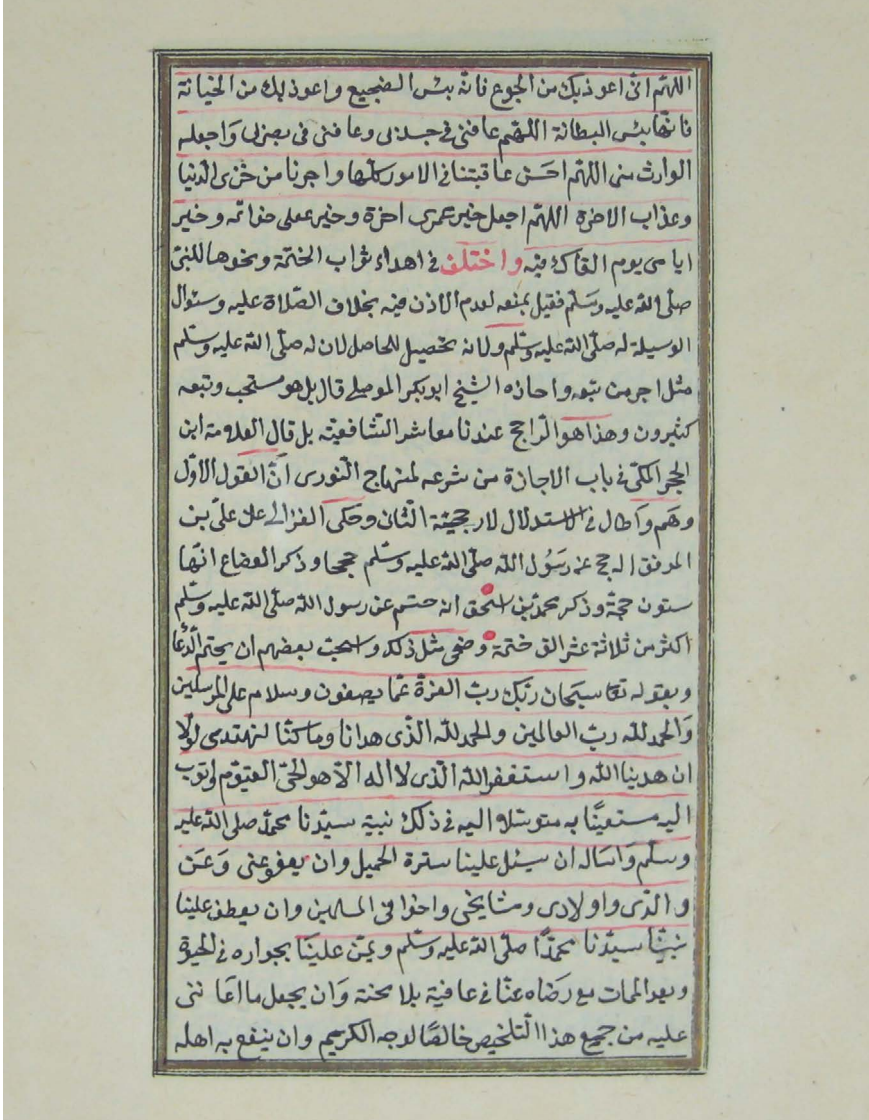 اللهم انى اعوذ بك من الجوع فانه بئس الضجيع واعوذ بك من الخيانة
فانها بئس البطانة اللهم عافنى فى جسدى وعافنى فى بصرى واجعله
الوارث منى اللهم احسن عاقبتنا فى الامور كلها واجرنا من خزى الدنيا
وعذاب الاخرة اللهم اجعل خير عمرى اخره وخير عملى خواتمه وخير
ايامى يوم القاك فيه واختلف فى اهداء ثواب الختمة ونحوها للنبى
صلى الله عليه وسلم فقيل بمنعه لعدم الاذن فيه بخلاف الصلاة عليه وسئوال
الوسيلة له صلى الله عليه وسلم ولانه تحصيل للحاصل لان له صلى الله عليه وسلم
مثل اجر من تبعه واجازه الشيخ ابو بكر الموصلى قال بل هو مستحب وتبعه
كثيرون وهذا هو الراجح عندنا معاشر الشافعية بل قال العلامة ابن
الحجر المكى فى باب الاجازة من شرحه لمنهاج النووى ان القول الاول
وهم واطال فى الاستدلال لارجحية الثانى وحكى الغزالى عن على بن
الموفق انه حج عن رسول الله صلى الله عليه وسلم حججا وذكر القضاع انها
ستون حجة وذكر محمد بن اسحق انه ختم عن رسول الله صلى الله عليه وسلم
اكثر من ثلاثة عشر الف ختمة وضحى مثل ذلك واستحب بعضهم ان يختم الدعا
وبقوله تعا سبحان ربك رب العزة عما يصفون وسلام على المرسلين
والحمد لله رب العالمين والحمد لله الذى هدانا وما كنا لنهتدى لولا
ان هدينا الله واستغفر الله الذى لا اله الا هو الحى القيوم واتوب
اليه مستعينا به متوسلا اليه فى ذلك نبيه سيدنا محمد صلى الله عليه
وسلم واساله ان سيبل علينا سترة الجميل وان يعفو عنى وعن
والدى واولادى ومشايخى واخوانى المسلمين وان يعطف علينا
نبينا سيدنا محمدا صلى الله عليه وسلم ويمن علينا بجواره فى الحيوة
وبعد الممات مع رضاه عنا فى عافية بلا محنة وان يجعل ما اعاننى
عليه من جميع هذا التلخيص خالصا لوجه الكريم وان ينفع به اهله